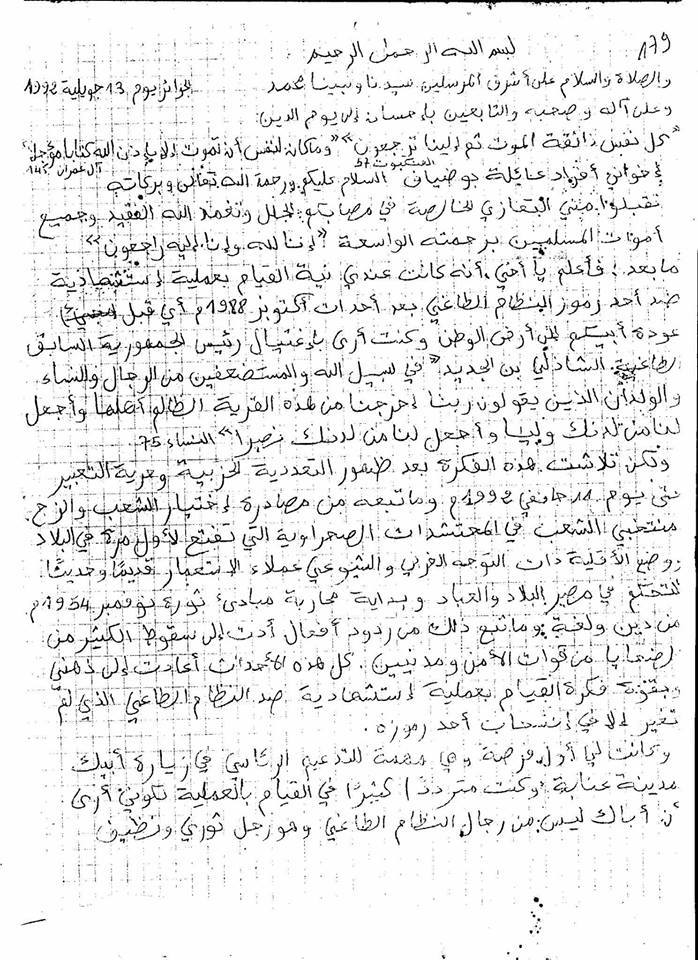 179
بسم الله الرحمن الرحيم
والصلاة والسلام على أشرف المرسلين سيدنا ونبينا محمد الجزائر يوم 13 جويلية 1992
وعلى آله وصحبه والتابعين بإحسان إلى يوم الدين:
"كل نفس ذائقة الموت ثم إلينا ترجعون" "وما كان لنفس أن تموت إلا بإذن الله كتابا مؤجلا"
العنكبوت 57 آل عمران 145
إخواني أفراد عائلة بوضياف السلام عليكم ورحمة الله تعالى وبركاته
تقبلوا مني التعازي الخالصة في مصابكم الجلل وتغمد الله الفقيد وجميع
أموات المسلمين برحمته الواسعة "إنا لله وإنا إليه راجعون"
ما بعد: فأعلم يا أخي، أنه كانت عندي نية القيام بعملية إستشهادية
ضد أحد رموز النظام الطاغي بعد أحداث أكتوبر 1988م أي قبل
عودة أبيكم إلى أرض الوطن وكنت أرى بإغتيال رئيس الجمهورية السابق
الطاغية الشاذلي بن الجديد "في سبيل الله والمستضعفين من الرجال والنساء
والولدان الذين يقولون ربنا إخرجنا من هذه القرية الظالم أهلها وأجعل
لنا من لدنك وليا وأجعل لنا من لدنك نصيرا" النساء 75
ولكن تلاشت هذه الفكرة بعد ظهور التعددية الحزبية وحرية التعبير
حتى يوم 11 جانفي 1992م وما تبعه من مصادرة إختيار الشعب والزج
منتخبي الشعب في المحتشدات الصحراوية التي تفتح لأول مرة في البلاد
ووضع الأقلية ذات التوجه الغربي والشيوعي عملاء الإستعمار قديمًا وحديثًا
للتحكم في مصير البلاد والعباد وبداية محاربة مبادئ ثورة نوفمبر 1954م
من دين ولغة وما تبع ذلك من ردود أفعال أدت إلى سقوط الكثير من
الضحايا من قوات الأمن ومدنيين. كل هذه الأحداث أعادت إلى ذهني
وبقوة فكرة القيام بعملية إستشهادية ضد النظام الطاغي الذي لم
تغير إلا في إنسحاب أحد رموزه.
وكانت لي أول فرصة وهي مهمة للتدعيم الرئاسي في زيارة أبيك
مدينة عنابة وكنت مترددًا كثيرًا في القيام بالعملية لكوني أرى
أن أباك ليس من رجال النظام الطاغي وهو رجل ثوري ونظيف